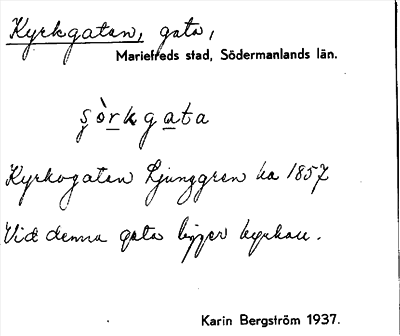 Kyrkgatan, gata,
Mariefreds stad, Södermanlands län.
şò̱rkga̱ta
Kyrkogatan Ljunggren ka 1857
Vid denna gata ligger kyrkan.
Karin Bergström 1937.